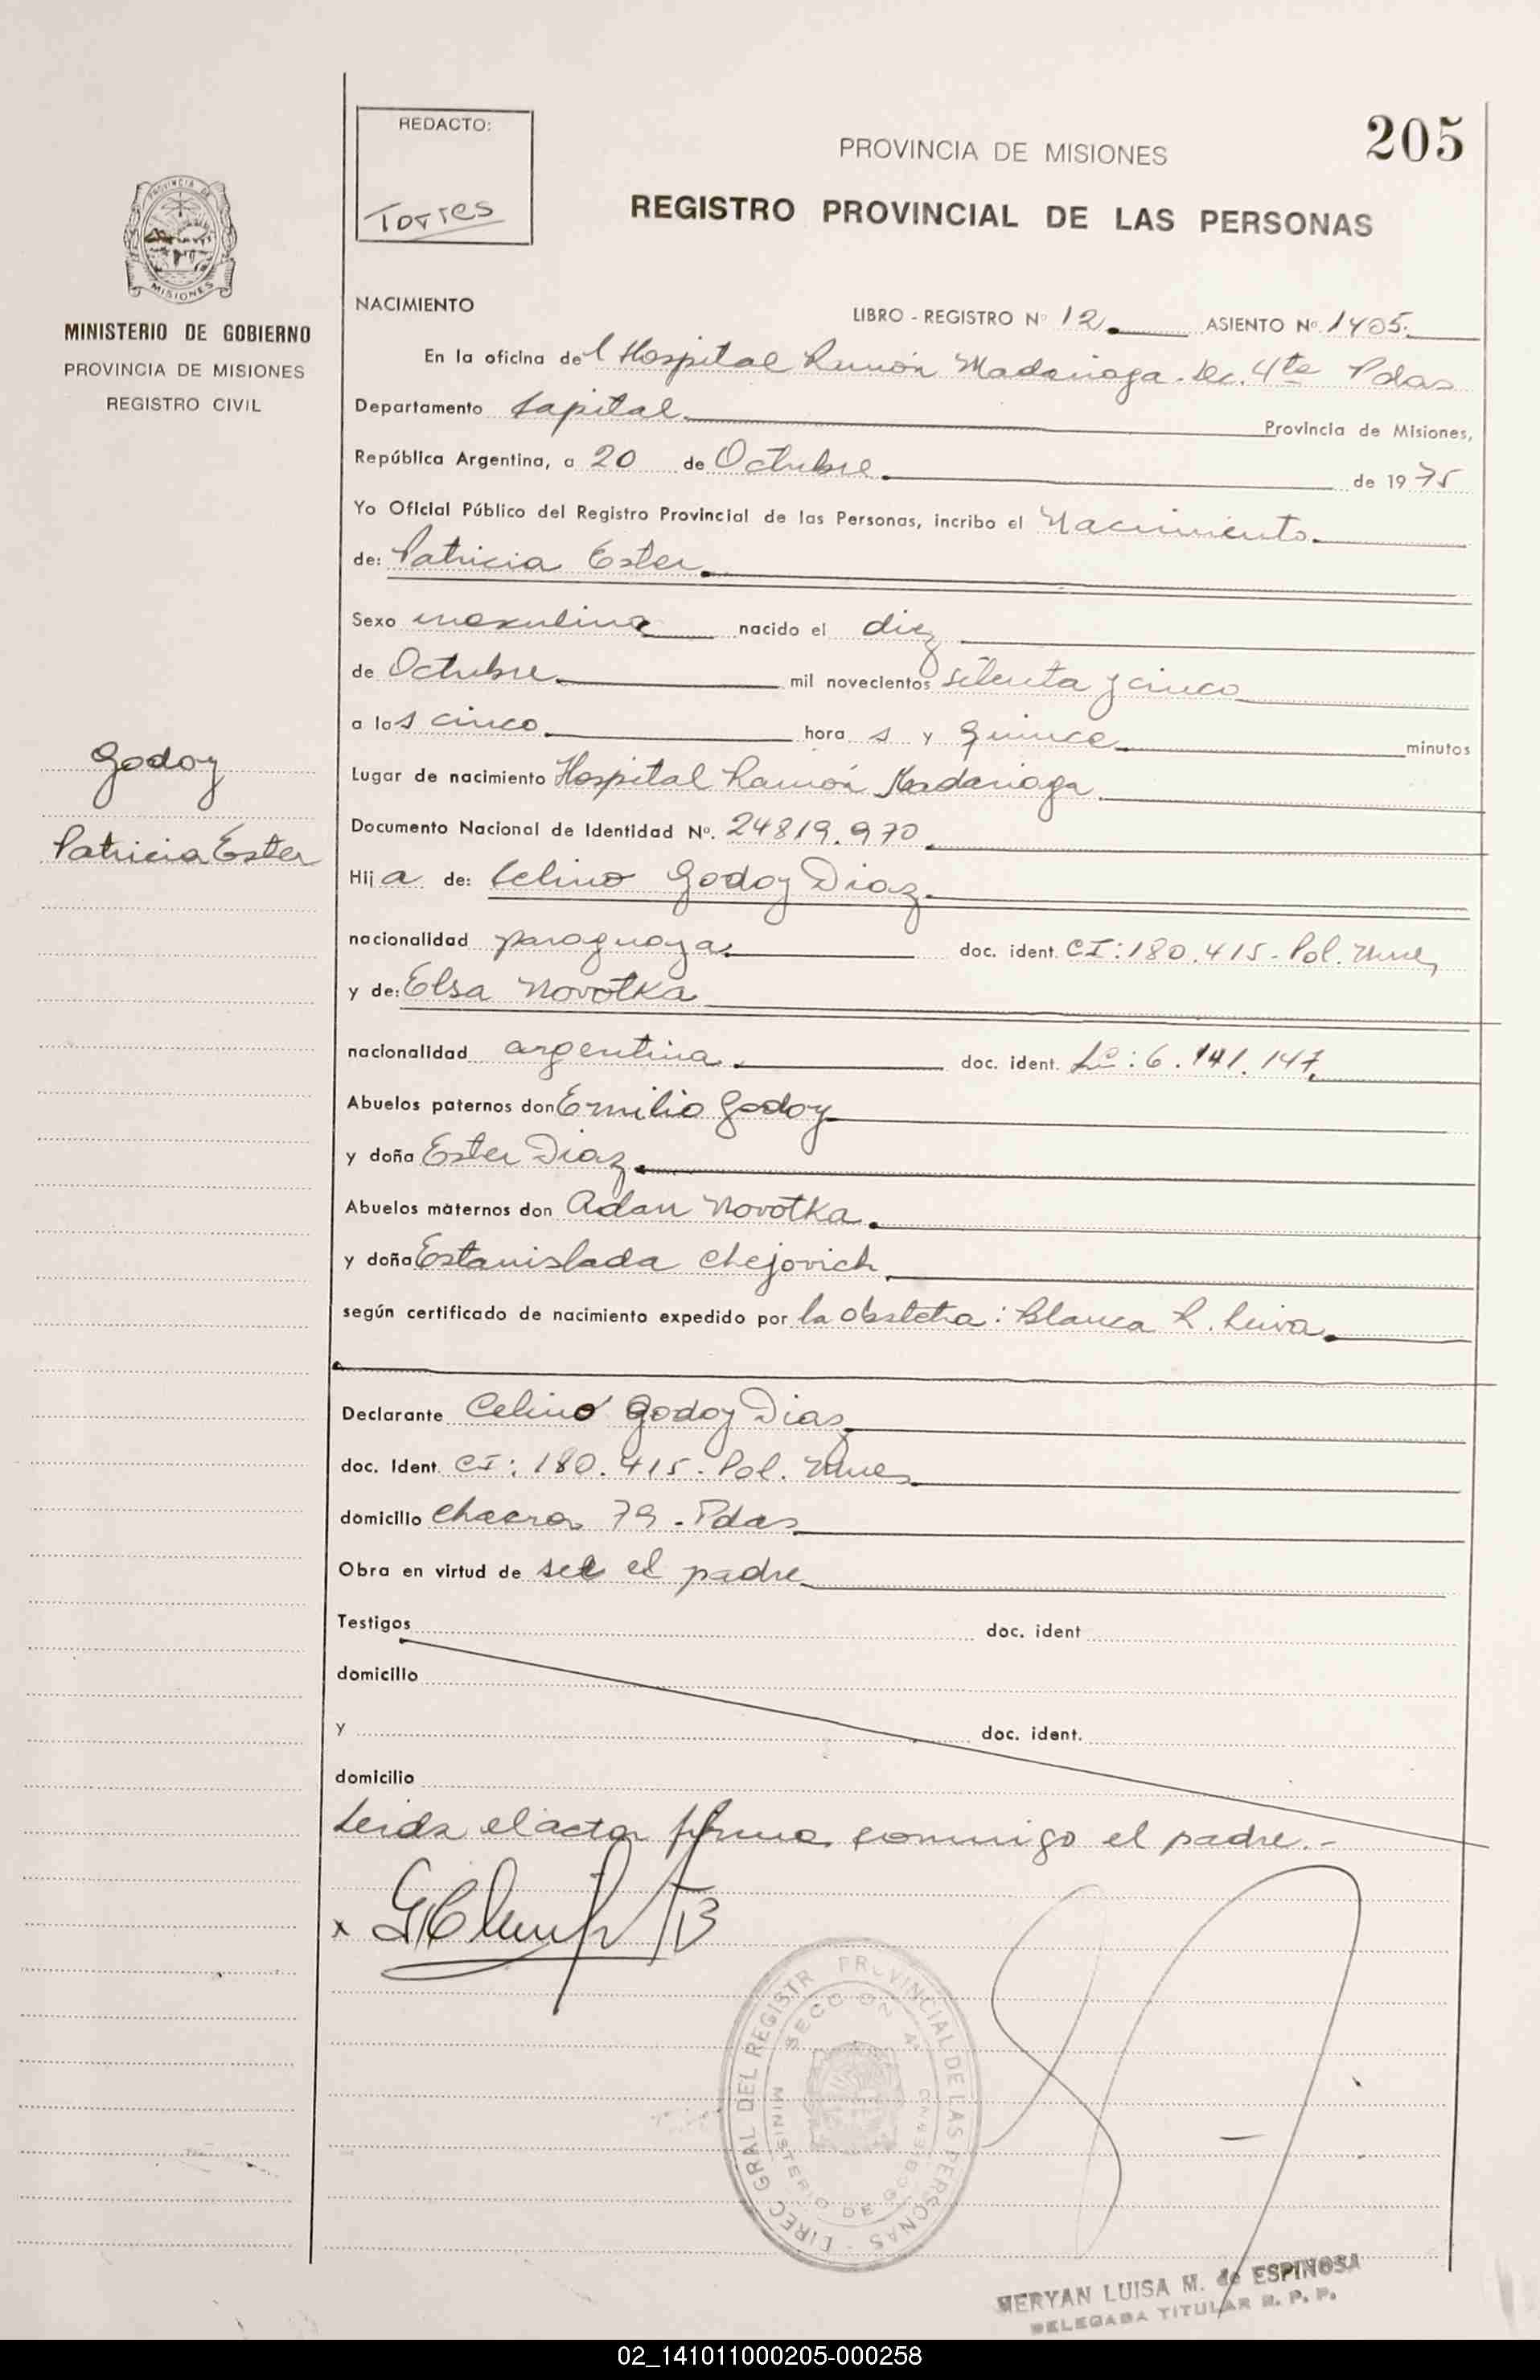 205
REDACTO:
Torres
PROVINCIA DE MISIONES
REGISTRO PROVINCIAL DE LAS PERSONAS
PROVINCIA DE
MISIONES
MINISTERIO DE GOBIERNO
PROVINCIA DE MISIONES
REGISTRO CIVIL
NACIMIENTO
LIBRO - REGISTRO Nº 12. ASIENTO Nº 1405.
En la oficina del Hospital Ramón Madariaga. Sec. 4ta Pdas
Departamento Capital. Provincia de Misiones,
República Argentina, a 20 de Octubre de 1975
Yo Oficial Público del Registro Provincial de las Personas, incribo el Nacimiento.
de: Patricia Ester.
Sexo nacido el diez
de Octubre. mil novecientos setenta y cinco
a las cinco. hora s y quince minutos
Lugar de nacimiento Hospital Ramón Madariaga
Documento Nacional de Identidad Nº. 24819.970
Hija de: Celino Godoy Diaz.
nacionalidad paraguaya. doc. ident. CI: 180.415 - Pol. Mnes
y de: Elsa Novotka
nacionalidad argentina. doc. ident. LC: 6.141.147.
Abuelos paternos don Emilio Godoy
y doña Ester Diaz.
Abuelos maternos don Adan Novotka.
y doña Estanislada Chejovich.
según certificado de nacimiento expedido por la obstetra: Blanca R. Leiva.
Declarante Celino Godoy Diaz
doc. Ident. CI: 180.415 - Pol. Mnes
domicilio Chacra 79 - Pdas
Obra en virtud de ser el padre
Testigos doc. ident
domicilio
y doc. ident.
domicilio
Leida el acta firma conmigo el padre.-
x
Godoy
Patricia Ester
DIREC GRAL DEL REGISTR PROVINCIAL DE LAS PERSONAS
SECCION 4ª
MINISTERIO DE GOBIERNO
MERYAN LUISA M. de ESPINOSA
DELEGADA TITULAR R. P. P.
02_141011000205-000258